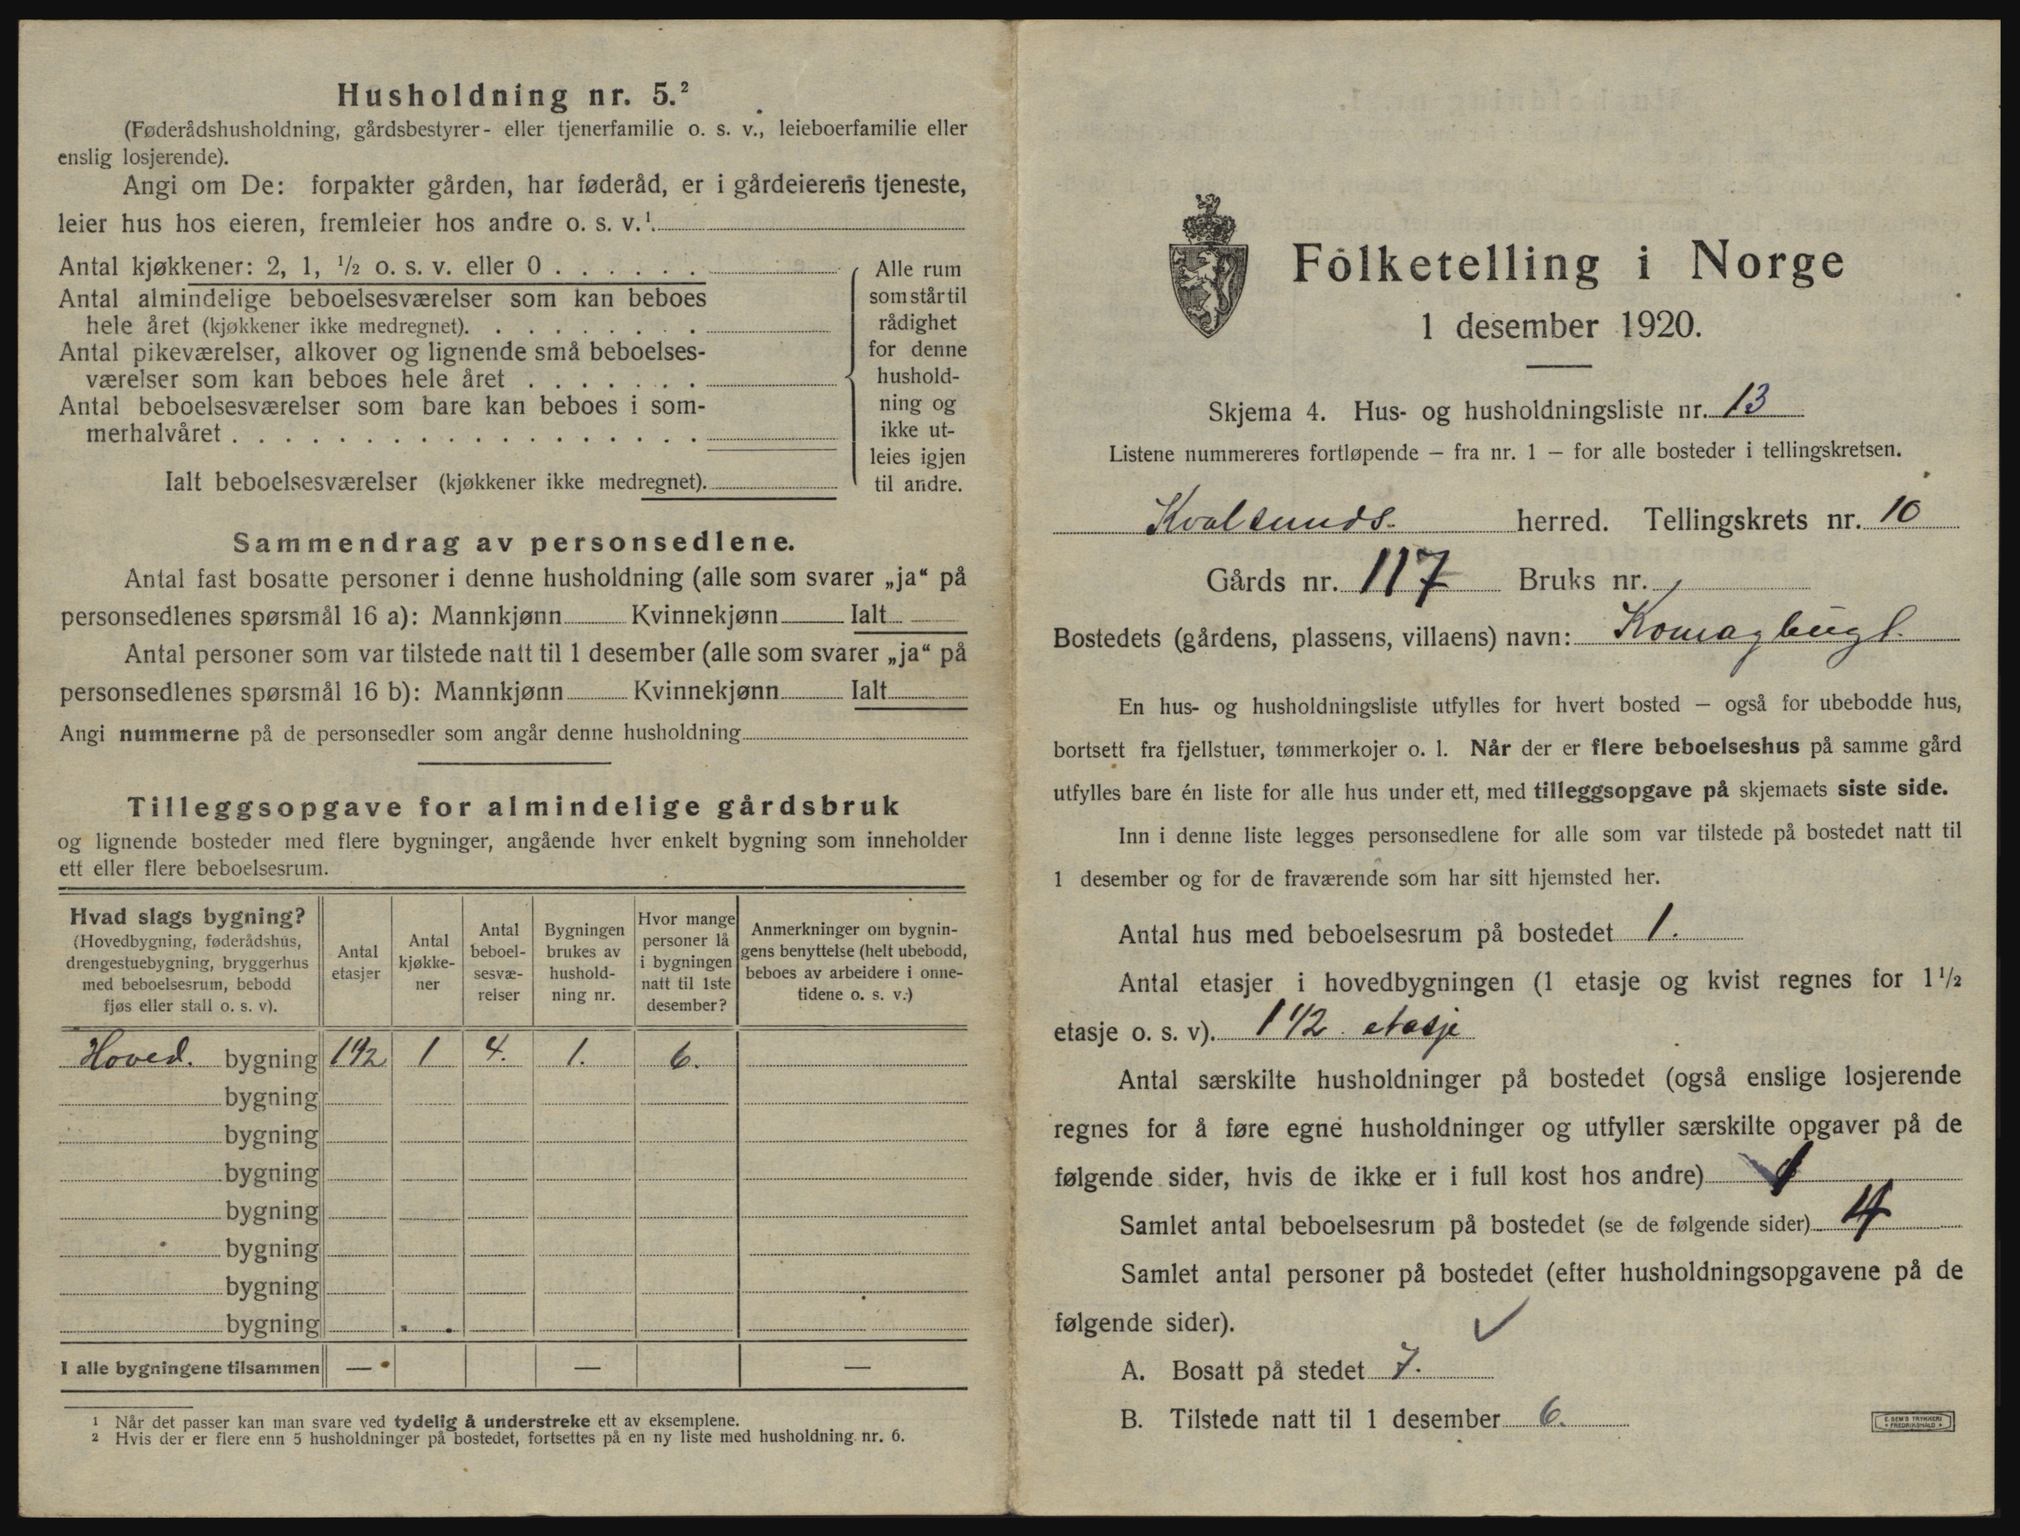 Husholdning nr. 5.²
(Føderådshusholdning, gårdsbestyrer- eller tjenerfamilie o. s. v., leieboerfamilie eller
enslig losjerende).
Angi om De: forpakter gården, har føderåd, er i gårdeierens tjeneste,
leier hus hos eieren, fremleier hos andre o. s. v.¹
Antal kjøkkener: 2, 1, ½ o. s. v. eller 0 . . . . . .
Antal almindelige beboelsesværelser som kan beboes
hele året (kjøkkener ikke medregnet). . . . . . . . .
Antal pikeværelser, alkover og lignende små beboelses-
værelser som kan beboes hele året . . . . . . .
Antal beboelsesværelser som bare kan beboes i som-
merhalvåret . . . . . . . . . . . . . . . . . .
Ialt beboelsesværelser (kjøkkener ikke medregnet).
Alle rum
som står til
rådighet
for denne
hushold-
ning og
ikke ut-
leies igjen
til andre.
Sammendrag av personsedlene.
Antal fast bosatte personer i denne husholdning (alle som svarer „ja“ på
personsedlenes spørsmål 16 a): Mannkjønn Kvinnekjønn Ialt
Antal personer som var tilstede natt til 1 desember (alle som svarer „ja“ på
personsedlenes spørsmål 16 b): Mannkjønn Kvinnekjønn Ialt
Angi nummerne på de personsedler som angår denne husholdning
Tilleggsopgave for almindelige gårdsbruk
og lignende bosteder med flere bygninger, angående hver enkelt bygning som inneholder
ett eller flere beboelsesrum.
Hvad slags bygning?
(Hovedbygning, føderådshus,
drengestuebygning, bryggerhus
med beboelsesrum, bebodd
fjøs eller stall o. s. v).
Antal
etasjer
Antal
kjøkke-
ner
Antal
beboel-
sesvæ-
relser
Bygningen
brukes av
hushold-
ning nr.
Hvor mange
personer lå
i bygningen
natt til 1ste
desember?
Anmerkninger om bygnin-
gens benyttelse (helt ubebodd,
beboes av arbeidere i onne-
tidene o. s. v.)
Hoved. bygning 1 1/2 1 4. 1. 6.
bygning
bygning
bygning
bygning
bygning
bygning
bygning
I alle bygningene tilsammen — — —
¹ Når det passer kan man svare ved tydelig å understreke ett av eksemplene.
² Hvis der er flere enn 5 husholdninger på bostedet, fortsettes på en ny liste med husholdning nr. 6.
Folketelling i Norge
1 desember 1920.
Skjema 4. Hus- og husholdningsliste nr. 13
Listene nummereres fortløpende – fra nr. 1 – for alle bosteder i tellingskretsen.
Kvalsunds herred. Tellingskrets nr. 10
Gårds nr. 117 Bruks nr.
Bostedets (gårdens, plassens, villaens) navn: Komagbugt.
En hus- og husholdningsliste utfylles for hvert bosted – også for ubebodde hus,
bortsett fra fjellstuer, tømmerkojer o. l. Når der er flere beboelseshus på samme gård
utfylles bare én liste for alle hus under ett, med tilleggsopgave på skjemaets siste side.
Inn i denne liste legges personsedlene for alle som var tilstede på bostedet natt til
1 desember og for de fraværende som har sitt hjemsted her.
Antal hus med beboelsesrum på bostedet 1.
Antal etasjer i hovedbygningen (1 etasje og kvist regnes for 1½
etasje o. s. v). 1 1/2 etasje
Antal særskilte husholdninger på bostedet (også enslige losjerende
regnes for å føre egne husholdninger og utfyller særskilte opgaver på de
følgende sider, hvis de ikke er i full kost hos andre) 1
Samlet antal beboelsesrum på bostedet (se de følgende sider) 4
Samlet antal personer på bostedet (efter husholdningsopgavene på de
følgende sider). ✓
A. Bosatt på stedet 7.
B. Tilstede natt til 1 desember 6.
E. SEM'S TRYKKERI
FREDRIKSHALD